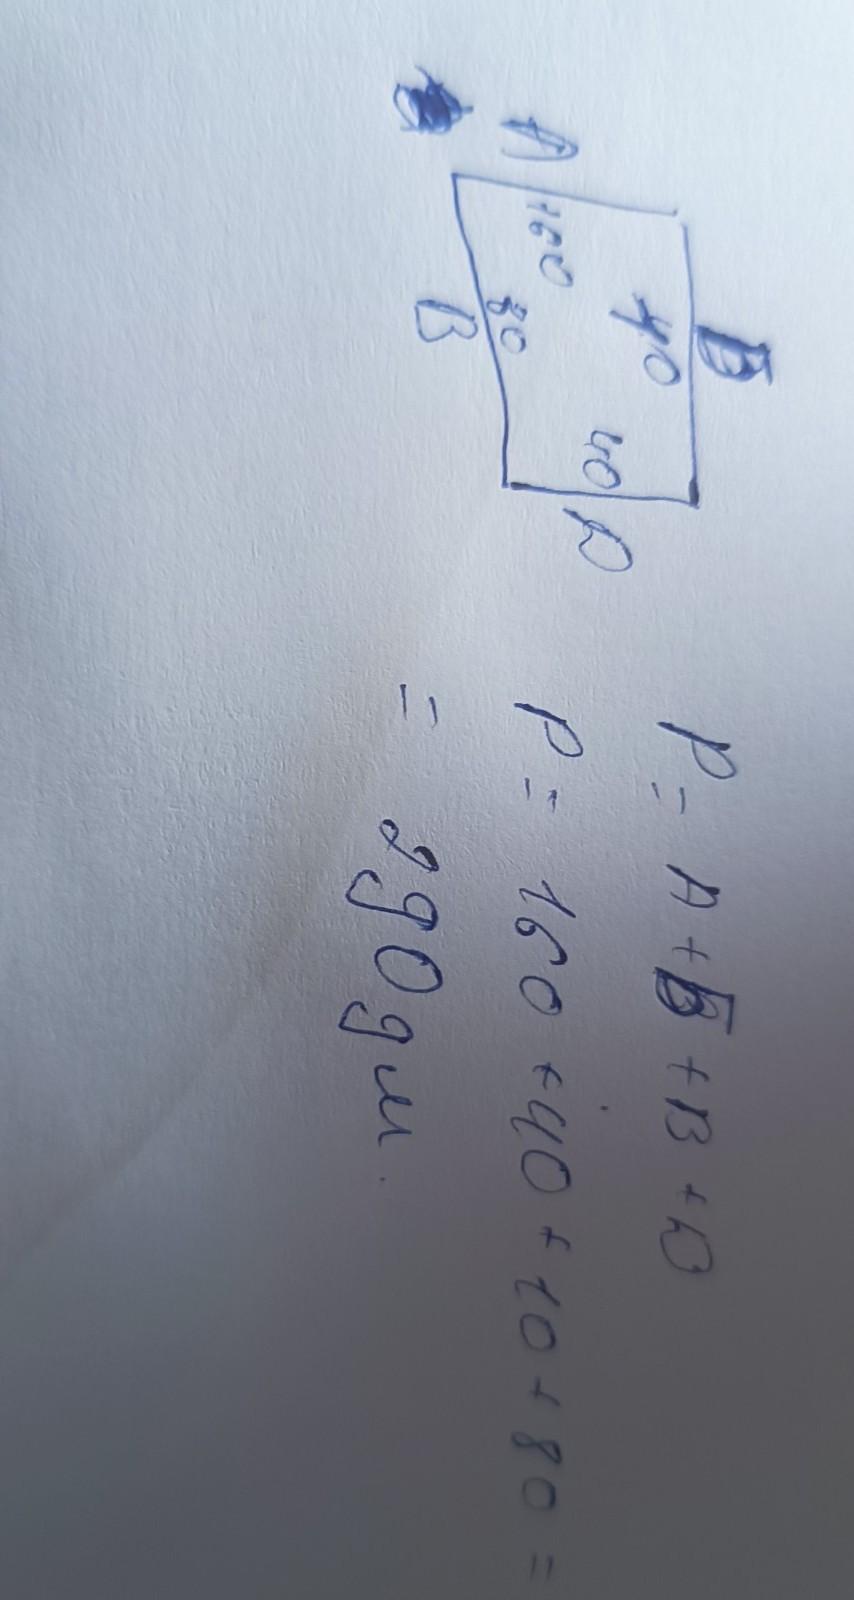 Б
40
А 160 40 D
80
В
P = A + Б + B + D
P = 160 + 40 + 10 + 80 =
= 290 дм.